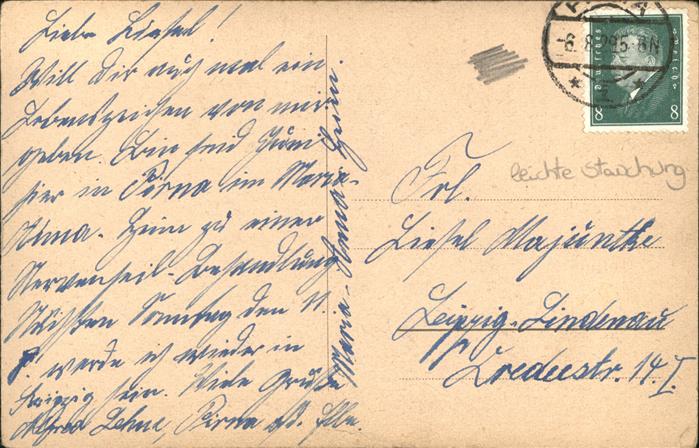 Liebe Liesel!
Will Dir auch mal ein
Lebenszeichen von mir
geben. Bin seid Juni
hier in Pirna im Maria-
Anna-Heim zu einer
Nervenheil-Behandlung
Nächsten Sonntag den 11.
8. werde ich wieder in
Leipzig sein. Viele Grüße
Alfred Lehne, Pirna a/d. Elbe.
Maria-Anna-Heim.
PIRNA
-6.8.29.5-6N
Deutsches Reich
8 8
leichte Stauchung
Frl.
Liesel Majunthe
Leipzig-Lindenau
str. 14 I.